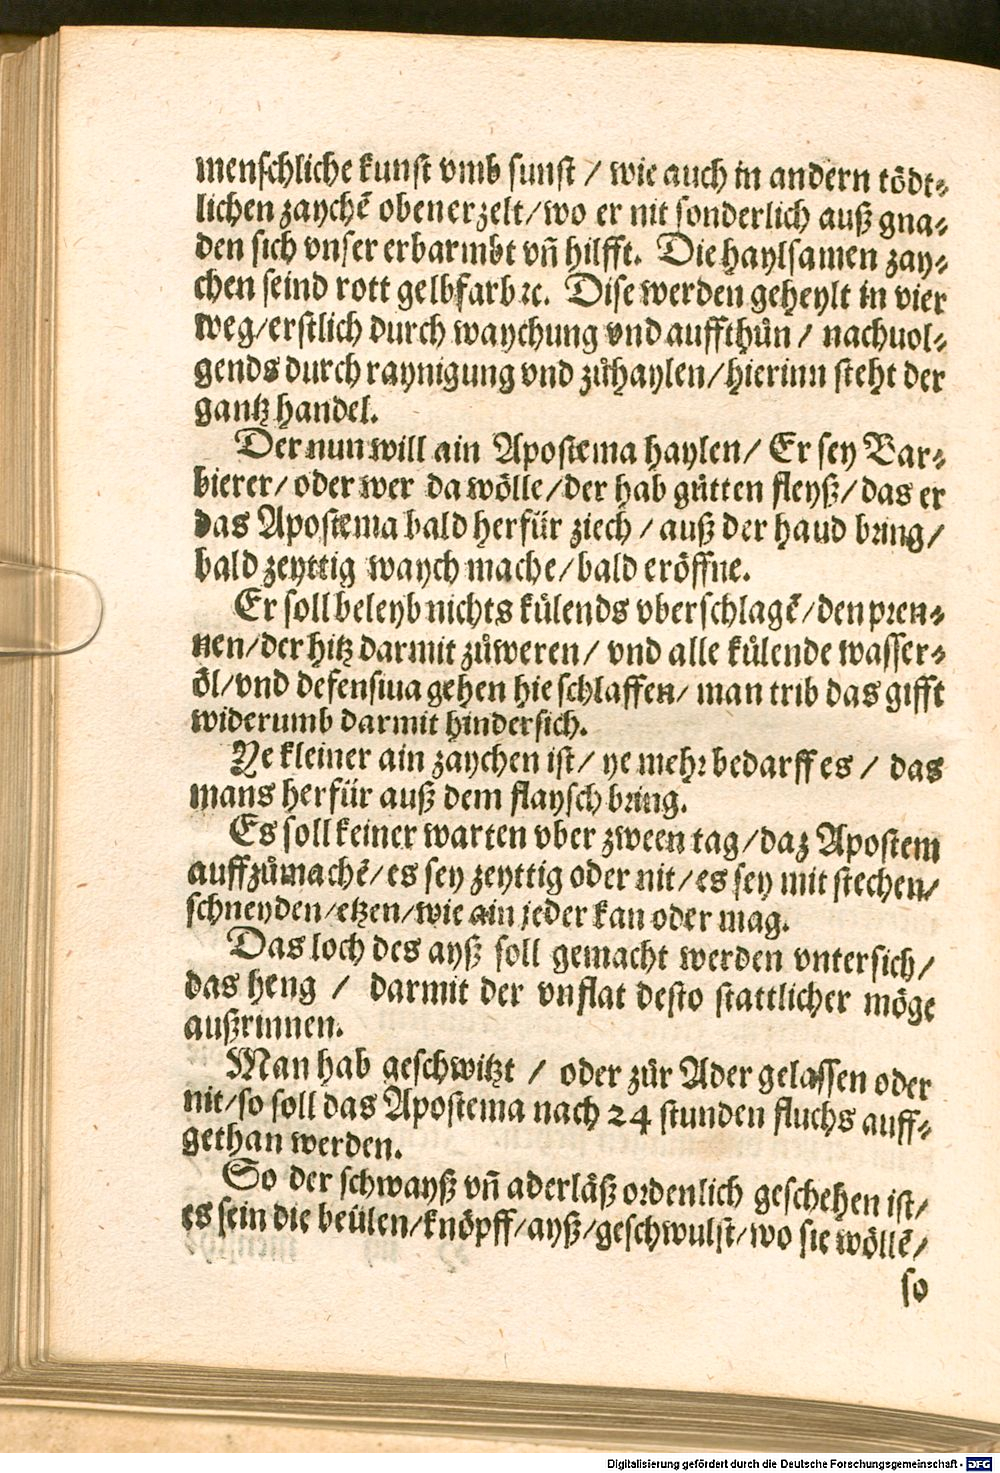 menschliche kunst vmb sunst / wie auch in andern tödt⸗
lichen zaychẽ obenerzelt/wo er nit sonderlich auß gna⸗
den sich vnser erbarmbt vñ hilfft. Die haylsamen zay⸗
chen seind rott gelbfarb ꝛc. Dise werden geheylt in vier
weg/erstlich durch waychung vnd auffthůn / nachuol⸗
gends durch raynigung vnd zůhaylen/hierinn steht der
gantz handel.
Der nun will ain Apostema haylen/ Er sey Bar⸗
bierer/ oder wer da wölle/der hab gůtten fleyß/das er
das Apostema bald herfür ziech / auß der haud bring/
bald zeyttig waych mache/bald eröffne.
Er soll beleyb nichts kůlends vberschlagẽ/den pren⸗
nen/der hitz darmit zůweren/ vnd alle kůlende wasser⸗
öl/vnd defensiua gehen hie schlaffen/ man trib das gifft
widerumb darmit hindersich.
Ye kleiner ain zaychen ist/ ye mehr bedarff es / das
mans herfür auß dem flaysch bring.
Es soll keiner warten vber zween tag/daz Apostem
auffzůmachẽ/es sey zeyttig oder nit/es sey mit stechen/
schneyden/etzen/wie ain jeder kan oder mag.
Das loch des ayß soll gemacht werden vntersich/
das heng / darmit der vnflat desto stattlicher möge
außrinnen.
Man hab geschwitzt / oder zůr Ader gelassen oder
nit/so soll das Apostema nach 24 stunden fluchs auff⸗
gethan werden.
So der schwayß vñ aderläß ordenlich geschehen ist/
es sein die beülen/knöpff/ayß/geschwulst/wo sie wöllẽ/
so
Digitalisierung gefördert durch die Deutsche Forschungsgemeinschaft - DFG